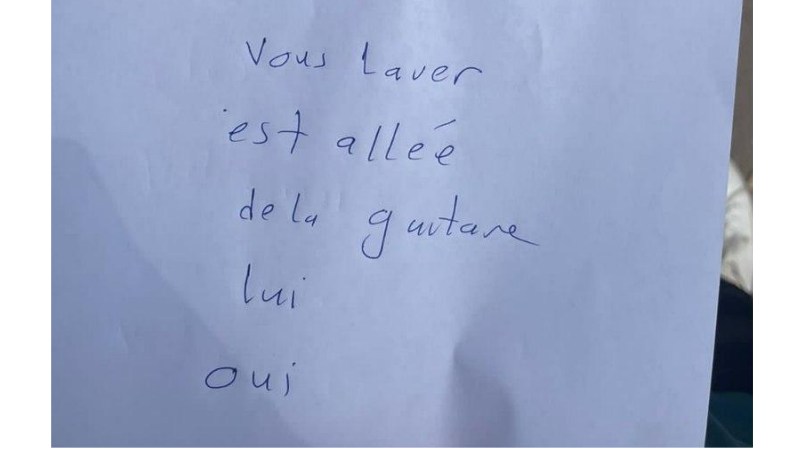 Vous laver
est allée
de la guitare
lui
oui